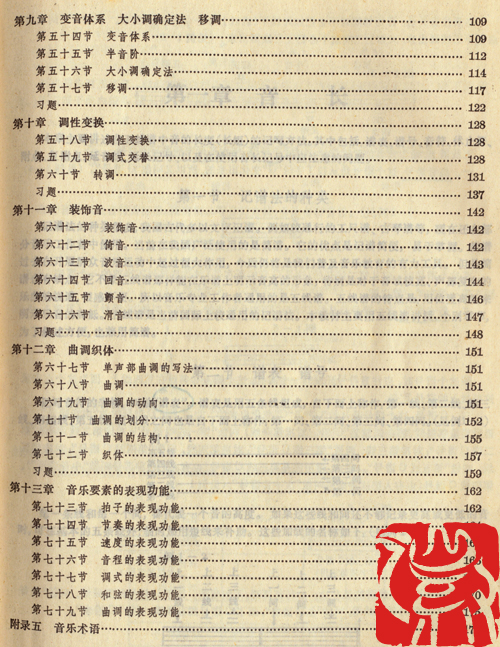 第九章 变音体系 大小调确定法 移调……109
第五十四节 变音体系……109
第五十五节 半音阶……112
第五十六节 大小调确定法……114
第五十七节 移调……117
习题……122
第十章 调性变换……128
第五十八节 调性变换……128
第五十九节 调式交替……128
第六十节 转调……131
习题……137
第十一章 装饰音……142
第六十一节 装饰音……142
第六十二节 倚音……142
第六十三节 波音……143
第六十四节 回音……144
第六十五节 颤音……146
第六十六节 滑音……147
习题……148
第十二章 曲调织体……151
第六十七节 单声部曲调的写法……151
第六十八节 曲调……151
第六十九节 曲调的动向……151
第七十节 曲调的划分……152
第七十一节 曲调的结构……155
第七十二节 织体……157
习题……159
第十三章 音乐要素的表现功能……162
第七十三节 拍子的表现功能……162
第七十四节 节奏的表现功能……
第七十五节 速度的表现功能……
第七十六节 音程的表现功能……
第七十七节 调式的表现功能……
第七十八节 和弦的表现功能……
第七十九节 曲调的表现功能……
附录五 音乐术语……